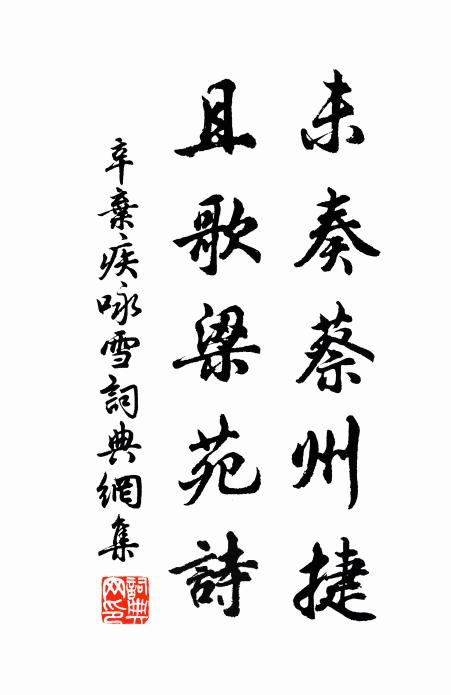 未奏蔡州捷
且歌梁苑詩
辛棄疾咏雪詞典網集
詞典網印